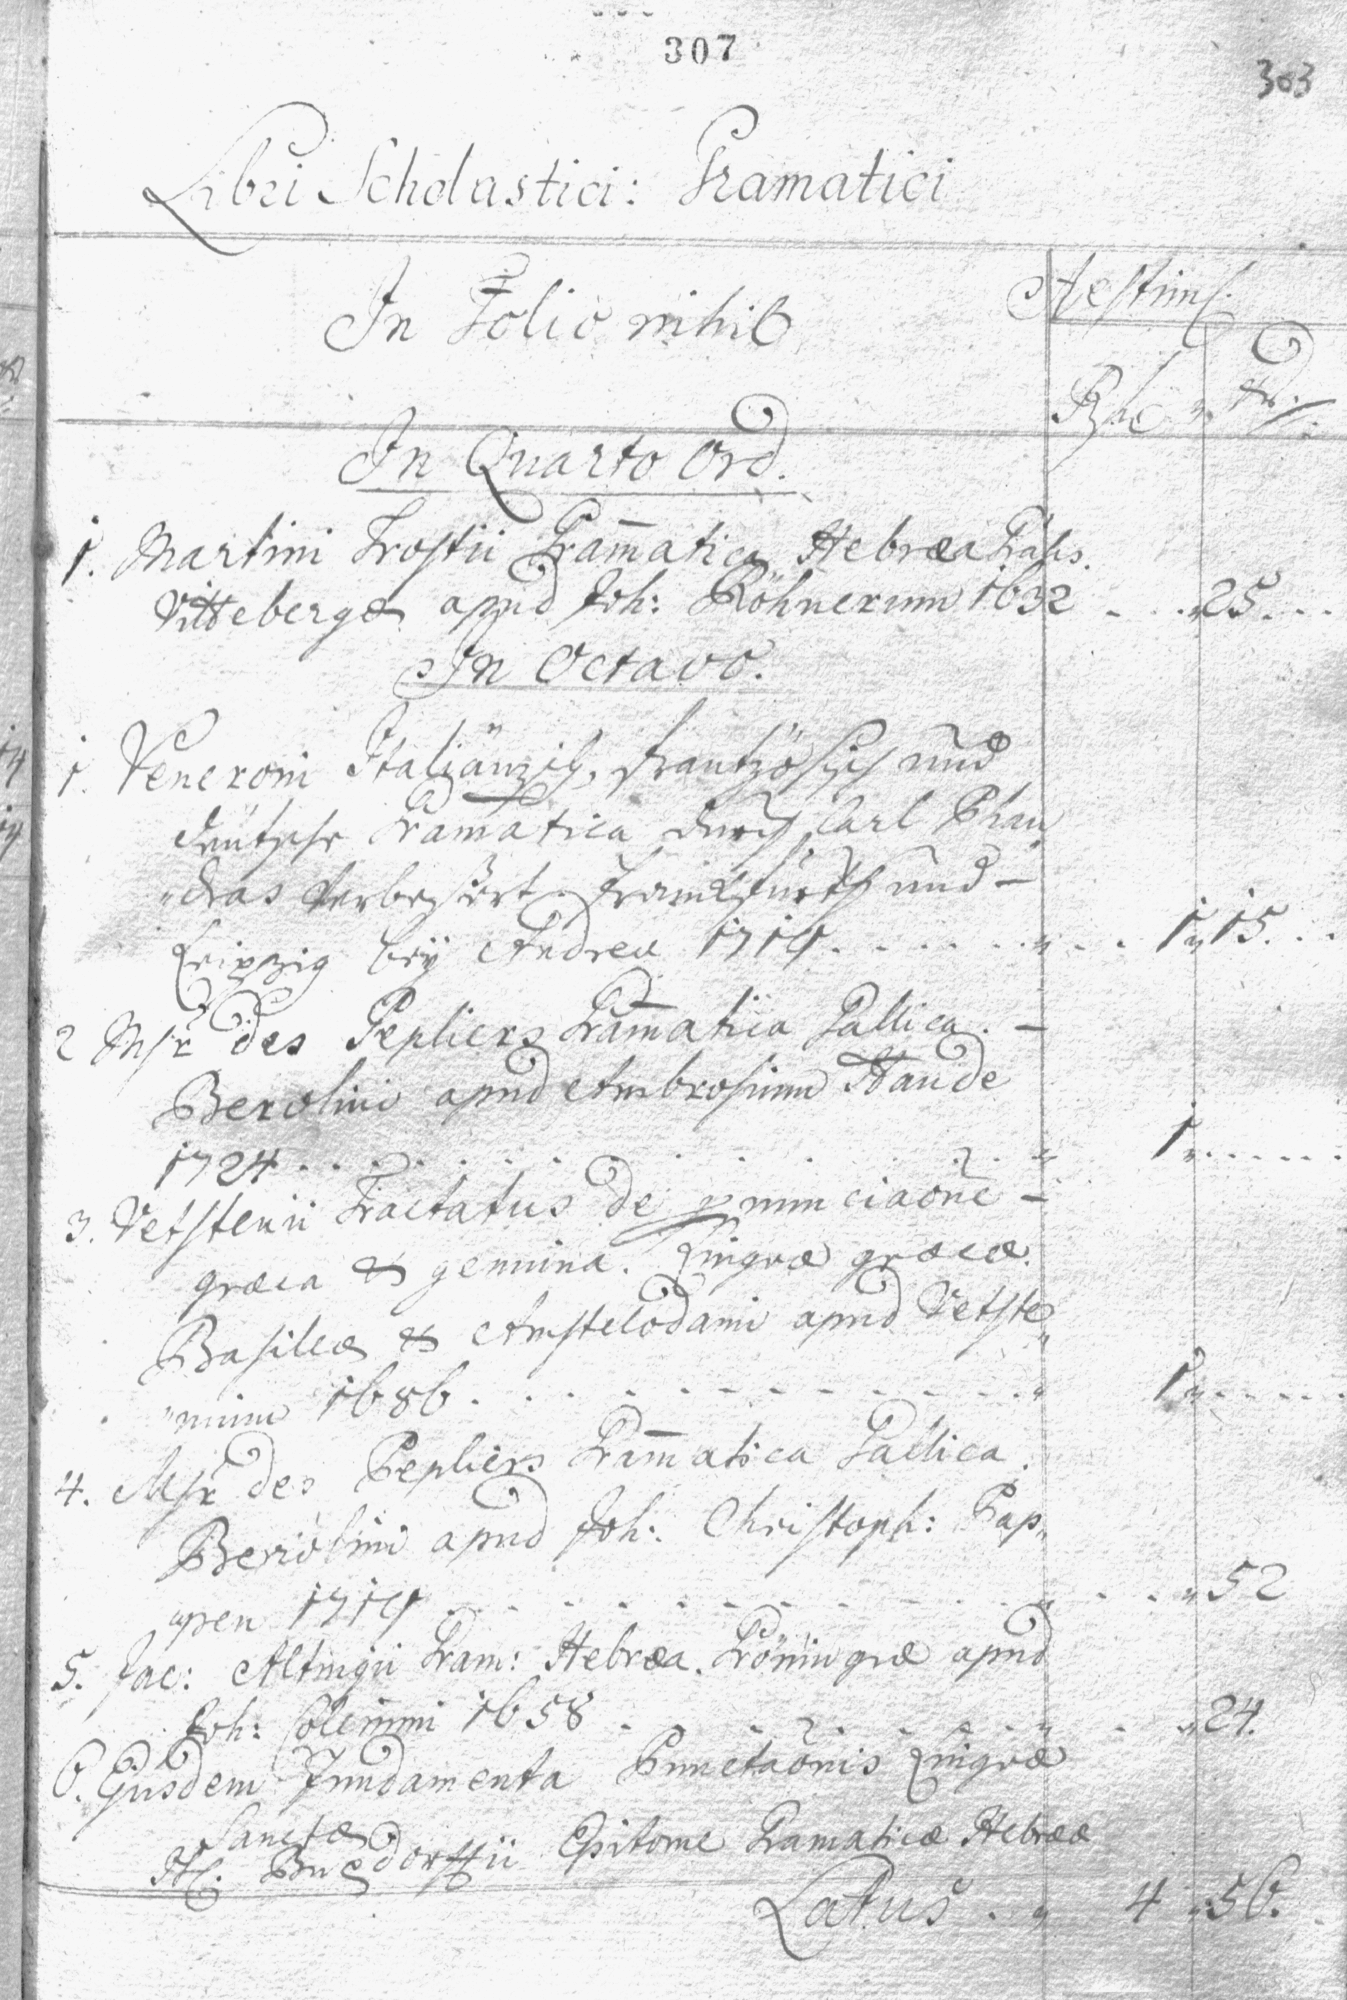 307
303
Libri Scholastici: Gramatici
In Folio nihil
Aestim.
Rthl " Xr.
In Quarto Ord.
1. Martini Trostii Gram̄atica Hebræa
Vitteberge apud Joh: Röhnerum 1632 . . . " 25. . .
In Octavo.
1. Veneroni Italiänisch, frantzösisch und
deütsche Gram̄atica durch Carl Phan
"dras verbeßert. Franckfurth und –
Leipzig beÿ Andrea 1714. . . . . . . " . . . 1 " 15. . .
2 Msr des Pepliers Gram̄atica Gallica. –
Berolini apud Ambrosium Haude
1724 . . . . . . . . . . . " 1 " . . . . .
3. Vetstenii Tractatus de pnunciaōne –
græca & genuina. Lingvæ græcæ.
Basileæ & Amstelodami apud Vetste
"nium 1686 . . . . . . . . . . . " 1 " . . . . .
4. Msr des Pepliers Gram̄atica Gallica.
Berolini apud Joh: Christoph: Pap"
"pen 1714 . . . . . . . . . . . " . . . " 52
5. Jac: Altingii Gram: Hebræa. Gröningæ apud
Joh: Colenium 1658 . . . . . . . . " . . " 24.
6. Ejusdem Fundamenta Punctaōnis Lingvæ
Sanctæ
It. Buxdorffii Epitome Gramaticæ Hebrææ
Latus . . " 4 " 56.